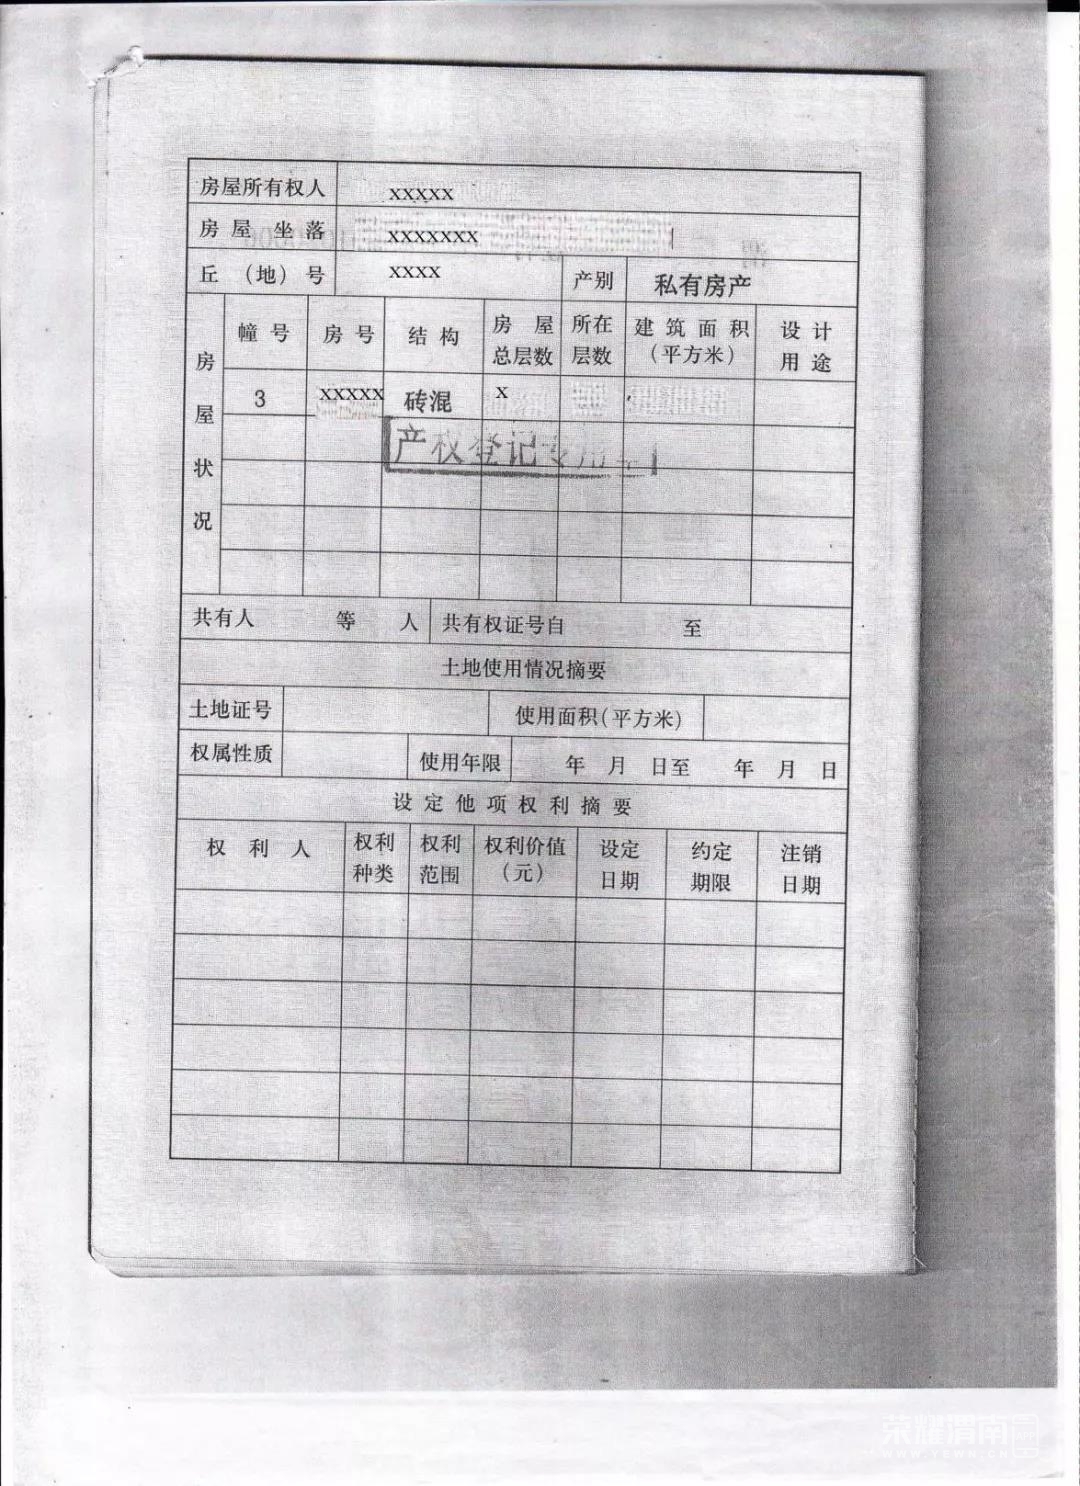 房屋所有权人 xxxxx
房屋坐落 xxxxxxx
丘（地）号 xxxx 产别 私有房产
房屋状况 幢号 房号 结构 房屋总层数 所在层数 建筑面积（平方米） 设计用途
3 xxxxx 砖混 x
产权登记专用
共有人 等 人 共有权证号自 至
土地使用情况摘要
土地证号 使用面积（平方米）
权属性质 使用年限 年 月 日至 年 月 日
设定他项权利摘要
权利人 权利种类 权利范围 权利价值（元） 设定日期 约定期限 注销日期
荣耀渭南 APP
WWW.YSWN.CN